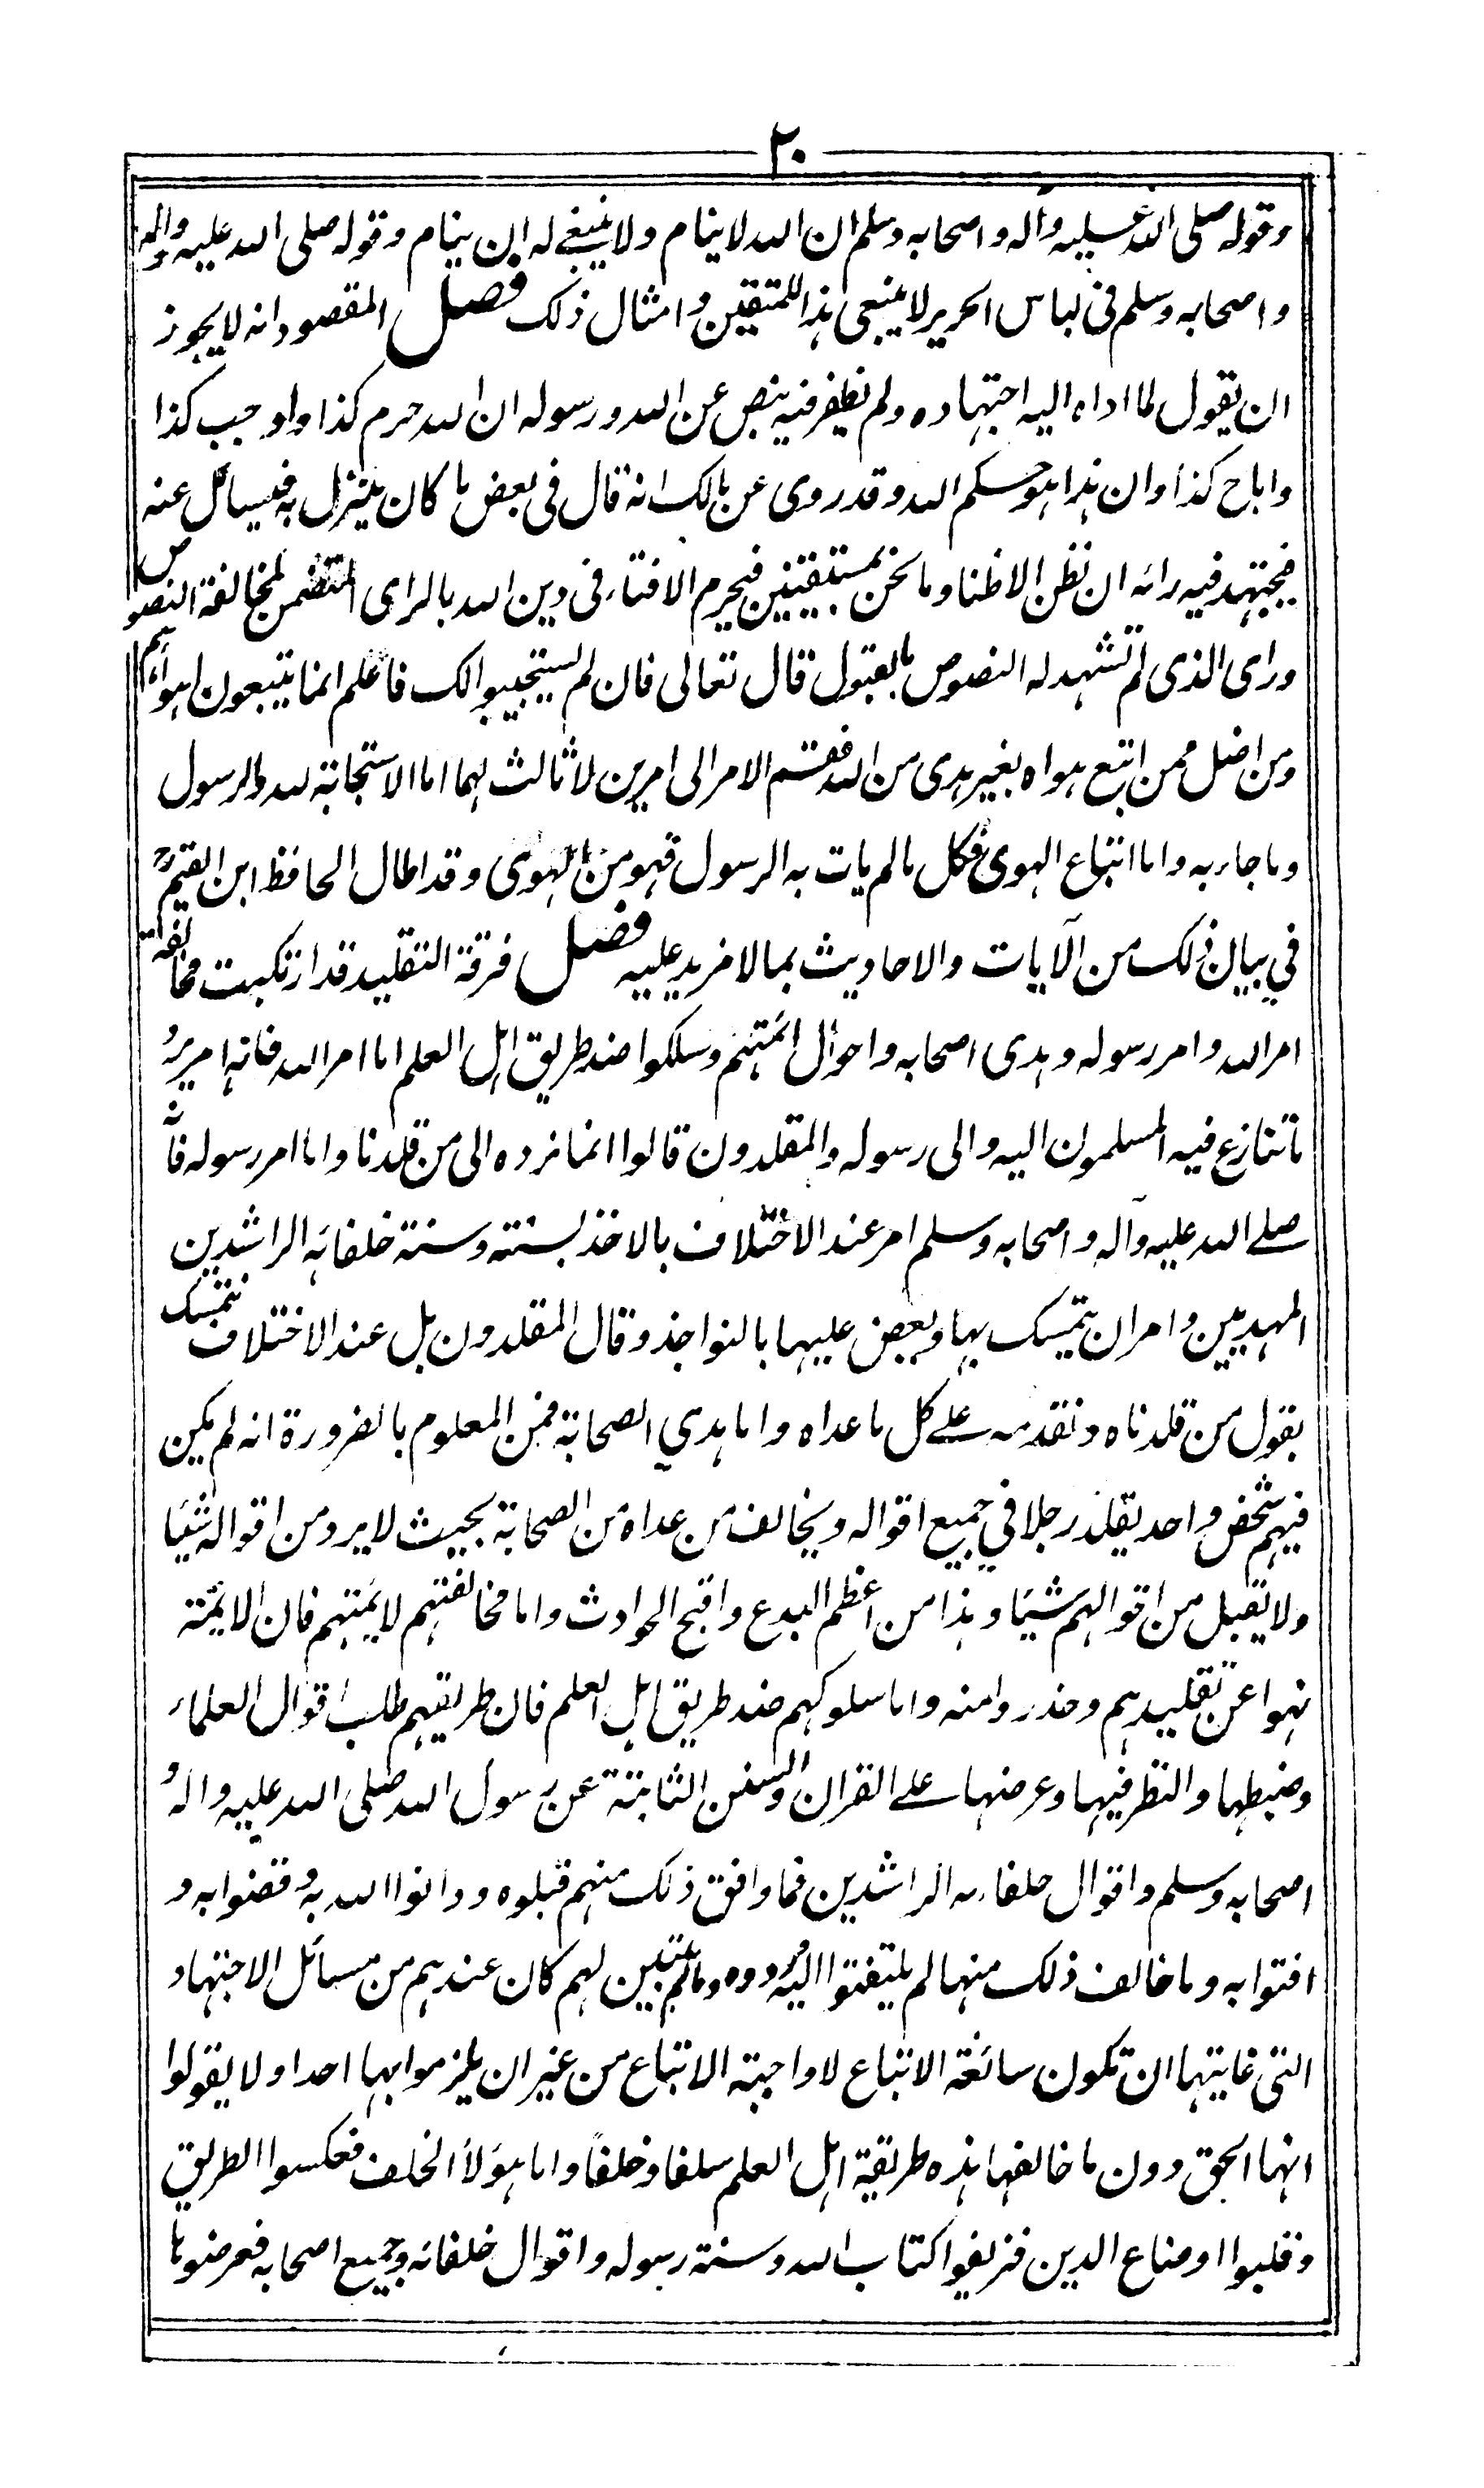 ٢٠
وقوله صلى الله عليه وآله واصحابه وسلم ان الله لا ينام ولا ينبغے له ان ينام وقوله صلى الله عليه وآله
واصحابه وسلم فى لباس الحرير لا ينبغى هذا للمتقين وامثال ذلك فصل المقصود انه لا يجوز
ان يقول لما اداه اليه اجتهاده ولم نظفر فيه بنص عن الله ورسوله ان الله حرم كذا واوجب كذا
واباح كذا وان هذا هو حكم الله وقد روى عن مالك انه قال فى بعض ما كان ينزل به فيسأل عنه
فيجتهد فيه رائه ان نظن الا ظنا وما نحن بمستيقنين فيحرم الافتاء فى دين الله بالراى المتضمن لمخالفة النصوص
وراى الذى لم تشهد له النصوص بالقبول قال تعالى فان لم يستجيبوا لك فاعلم انما يتبعون اهواءهم
ومن اضل ممن اتبع هواه بغير هدى من الله فقسم الامر الى امرين لا ثالث لهما اما الاستجابة لله والرسول
وما جاء به واما اتباع الهوى فكل ما لم يات به الرسول فهو من الهوى وقد اطال الحافظ ابن القيم رح
في بيان ذلك من الآيات والاحاديث بما لا مزيد عليه فصل فرقة التقليد قد ارتكبت مخالفة
امر الله وامر رسوله وهدى اصحابه واحوال ائمتهم وسلكوا ضد طريق اهل العلم اما امر الله فانه امر برد
ما تنازع فيه المسلمون اليه والى رسوله والمقلدون قالوا انما نرده الى من قلدنا واما امر رسوله فانه
صلے الله عليه وآله واصحابه وسلم امر عند الاختلاف بالاخذ بسنته وسنة خلفائه الراشدين
المهديين وامر ان يتمسك بها ويعض عليها بالنواجذ وقال المقلدون بل عند الاختلاف نتمسك
بقول من قلدناه ونقدمه علے كل ما عداه واما هدي الصحابة فمن المعلوم بالضرورة انه لم يكن
فيهم شخص واحد يقلد رجلا في جميع اقواله ويخالف من عداه من الصحابة بحيث لا يرد من اقواله شيئا
ولا يقبل من اقوالهم شيئا وهذا من اعظم البدع واقبح الحوادث واما مخالفتهم لائمتهم فان الائمة
نهوا عن تقليدهم وحذروا منه واما سلوكهم ضد طريق اهل العلم فان طريقهم طلب اقوال العلماء
وضبطها والنظر فيها وعرضها علے القران والسنن الثابتة عن رسول الله صلى الله عليه وآله و
اصحابه وسلم واقوال خلفاءه الراشدين فما وافق ذلك منهم قبلوه ودانوا الله به وقضوا به و
افتوا به وما خالف ذلك منها لم يلتفتوا اليه وردوه وما لم يتبين لهم كان عندهم من مسائل الاجتهاد
التى غايتها ان تكون سائغة الاتباع لا واجبة الاتباع من غير ان يلزموا بها احدا ولا يقولوا
انها الحق دون ما خالفها هذه طريقة اهل العلم سلفا وخلفا واما هؤلاء الخلف فعكسوا الطريق
وقلبوا اوضاع الدين فزيفوا كتاب الله وسنة رسوله واقوال خلفائه وجميع اصحابه فعرضوها